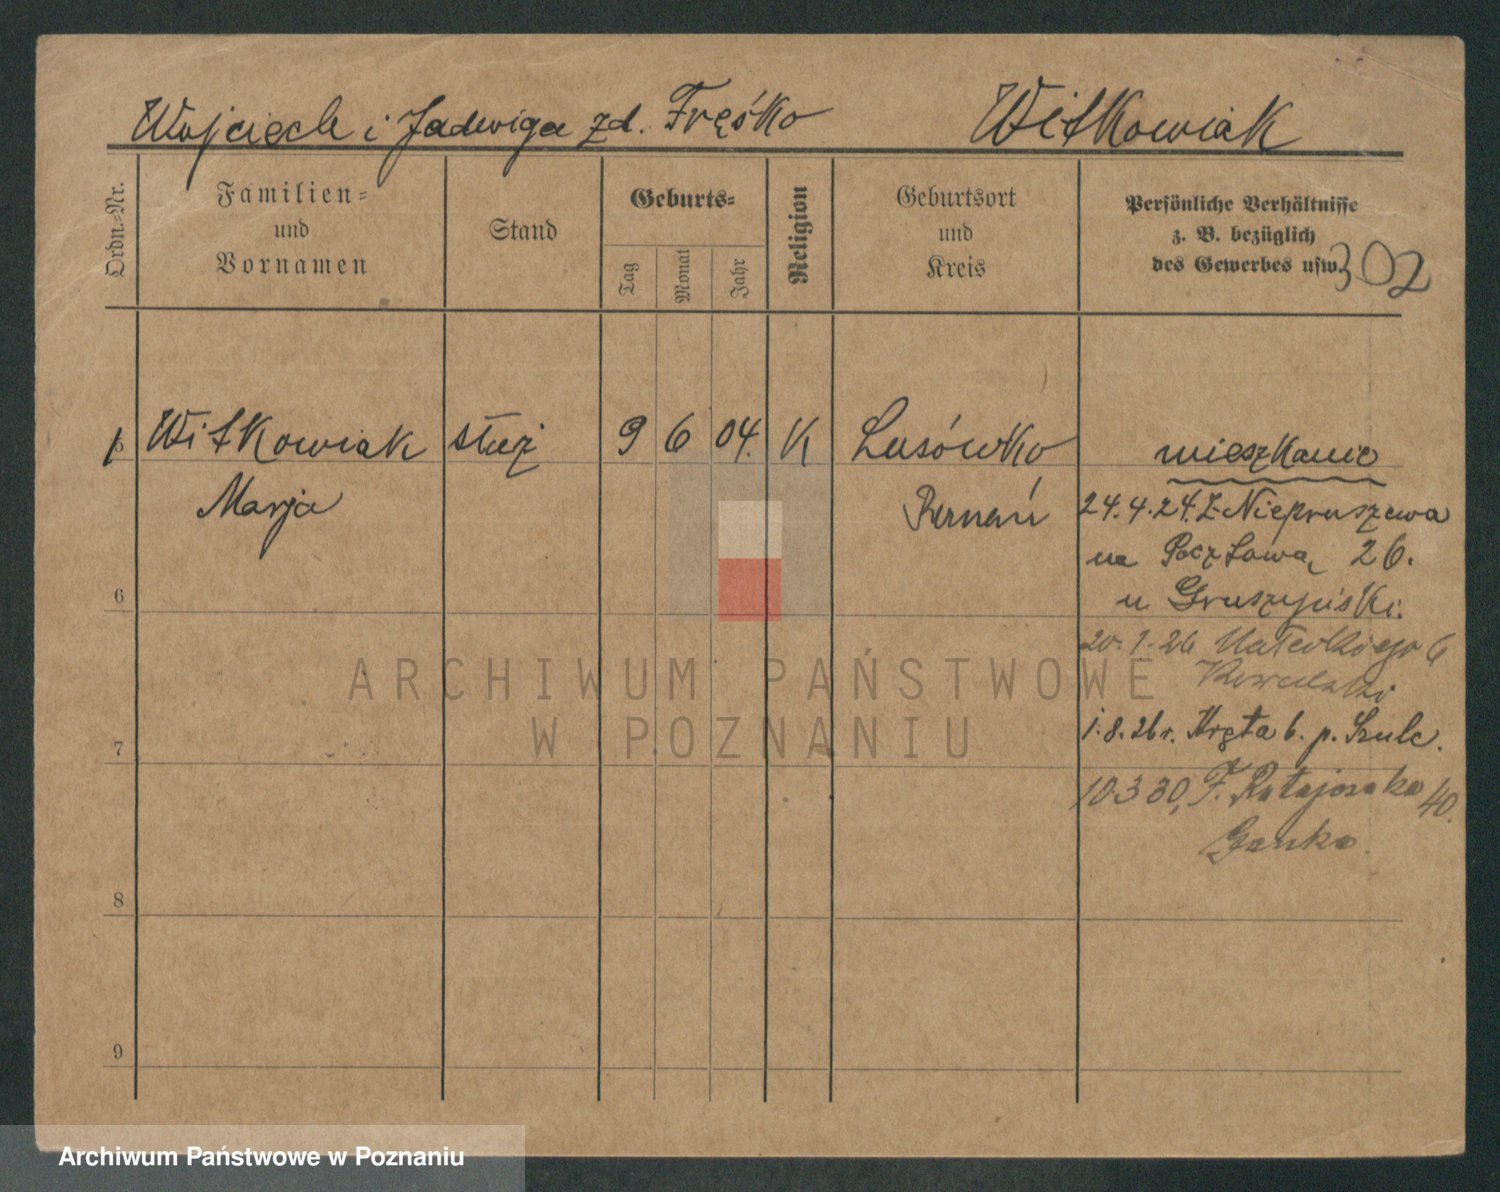 Wojciech i Jadwiga zd. Fręśko Witkowiak
Ordn.-Nr.
Familien- und Vornamen
Stand
Geburts-
Tag
Monat
Jahr
Religion
Geburtsort und Kreis
Persönliche Verhältnisse
z. B. bezüglich
des Gewerbes usw.
302
1 Witkowiak służ 9 6 04. K Lusówko
Marja Poznań
mieszkanie
24.4.24. z Niepruszewa
na Pocztową 26.
u Gruszyński.
20.1.26 6
Kowalski
1.8.26 r. Kręta 6. p. Szulc.
10 3 30, F. Ratajczaka 40.
6
7
8
9
ARCHIWUM PAŃSTWOWE
W POZNANIU
Archiwum Państwowe w Poznaniu